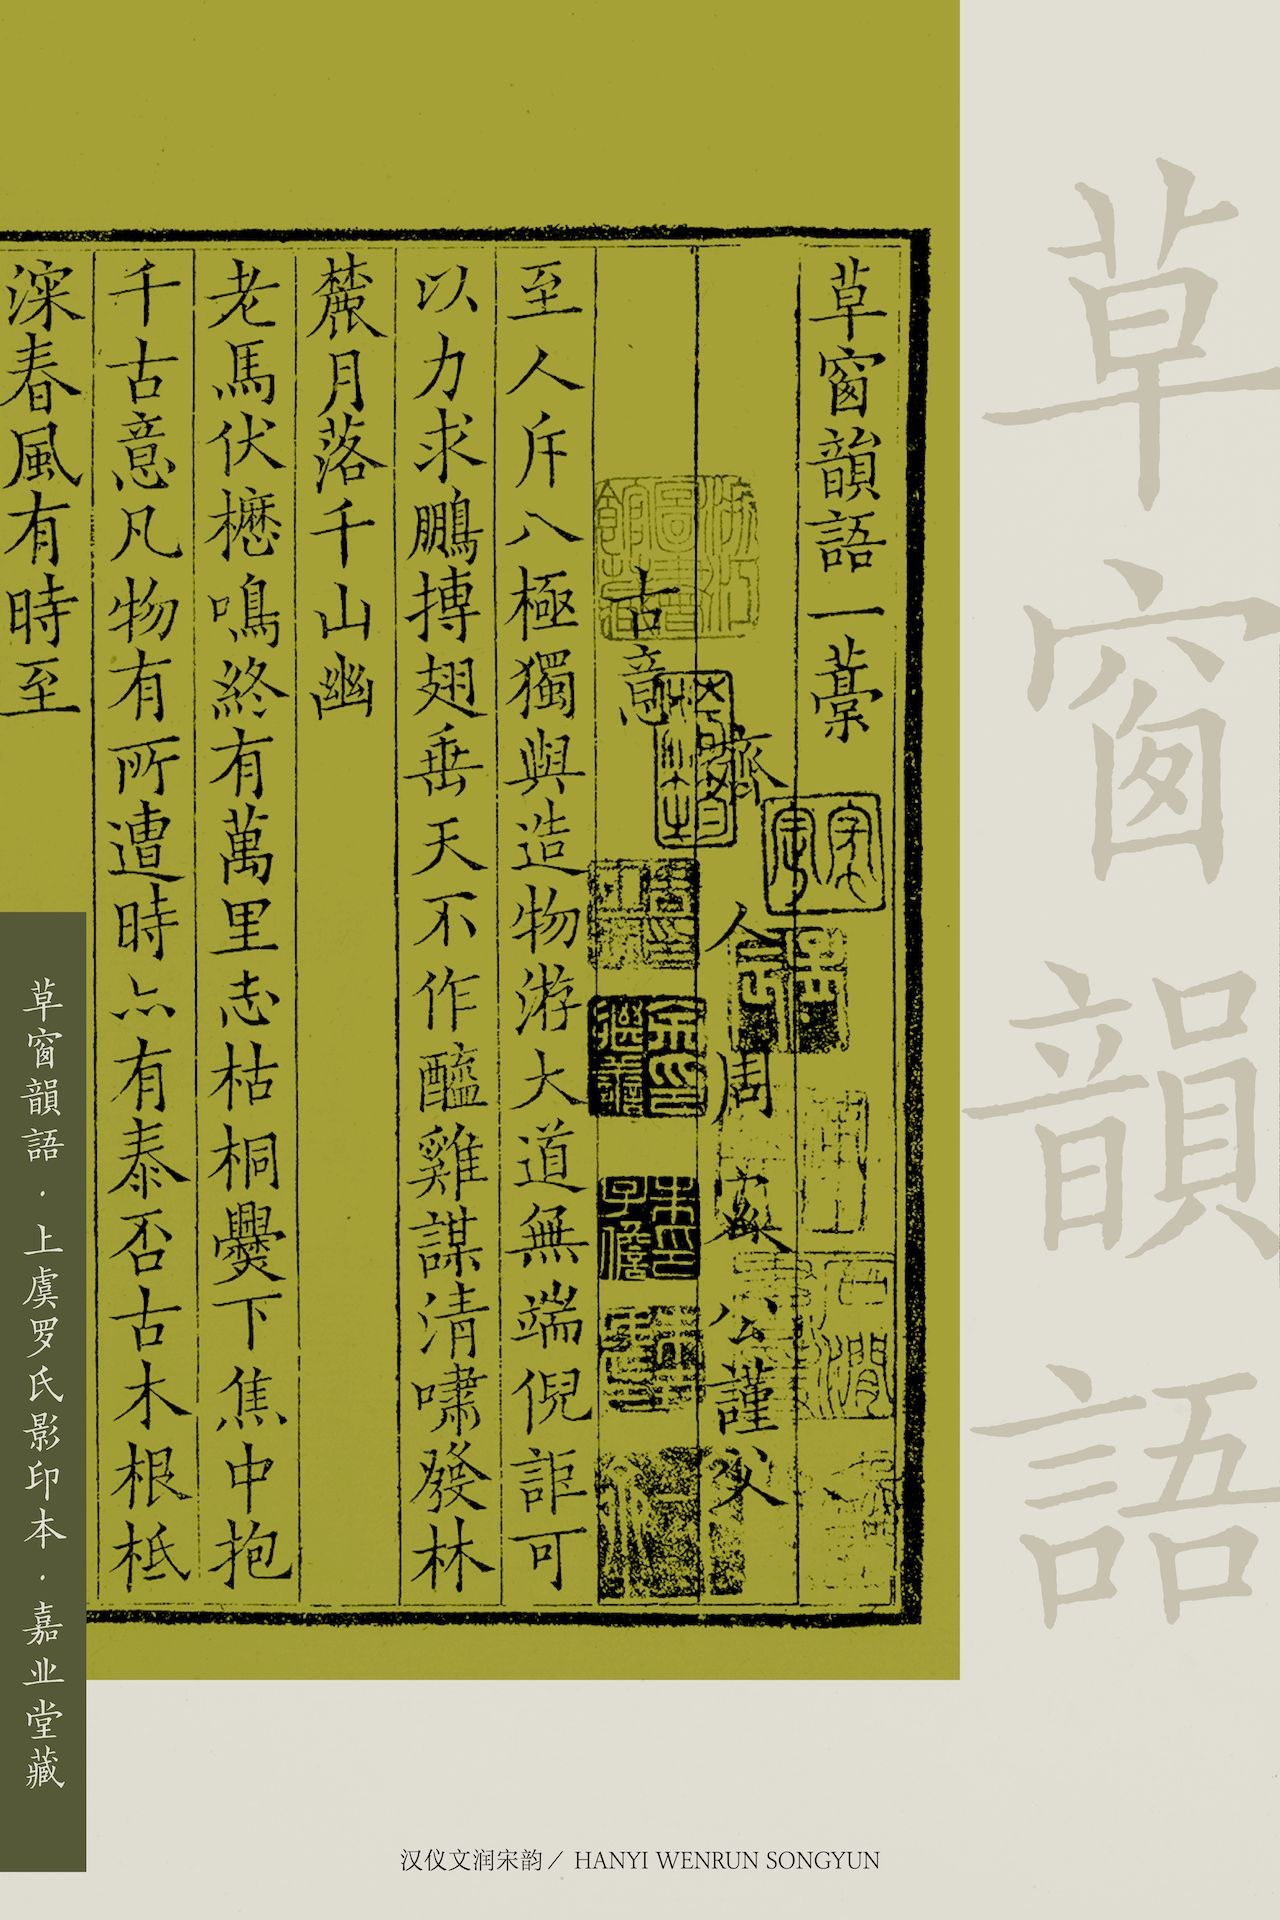 草窗韻語
草窗韻語一藁
齊人周密公謹父
古意
至人斥八極獨與造物游大道無端倪詎可
以力求鵬摶翅垂天不作醯雞謀清嘯發林
麓月落千山幽
老馬伏櫪鳴終有萬里志枯桐爨下焦中抱
千古意凡物有所遭時亦有泰否古木根柢
深春風有時至
草窗韻語·上虞罗氏影印本·嘉业堂藏
汉仪文润宋韵/ HANYI WENRUN SONGYUN